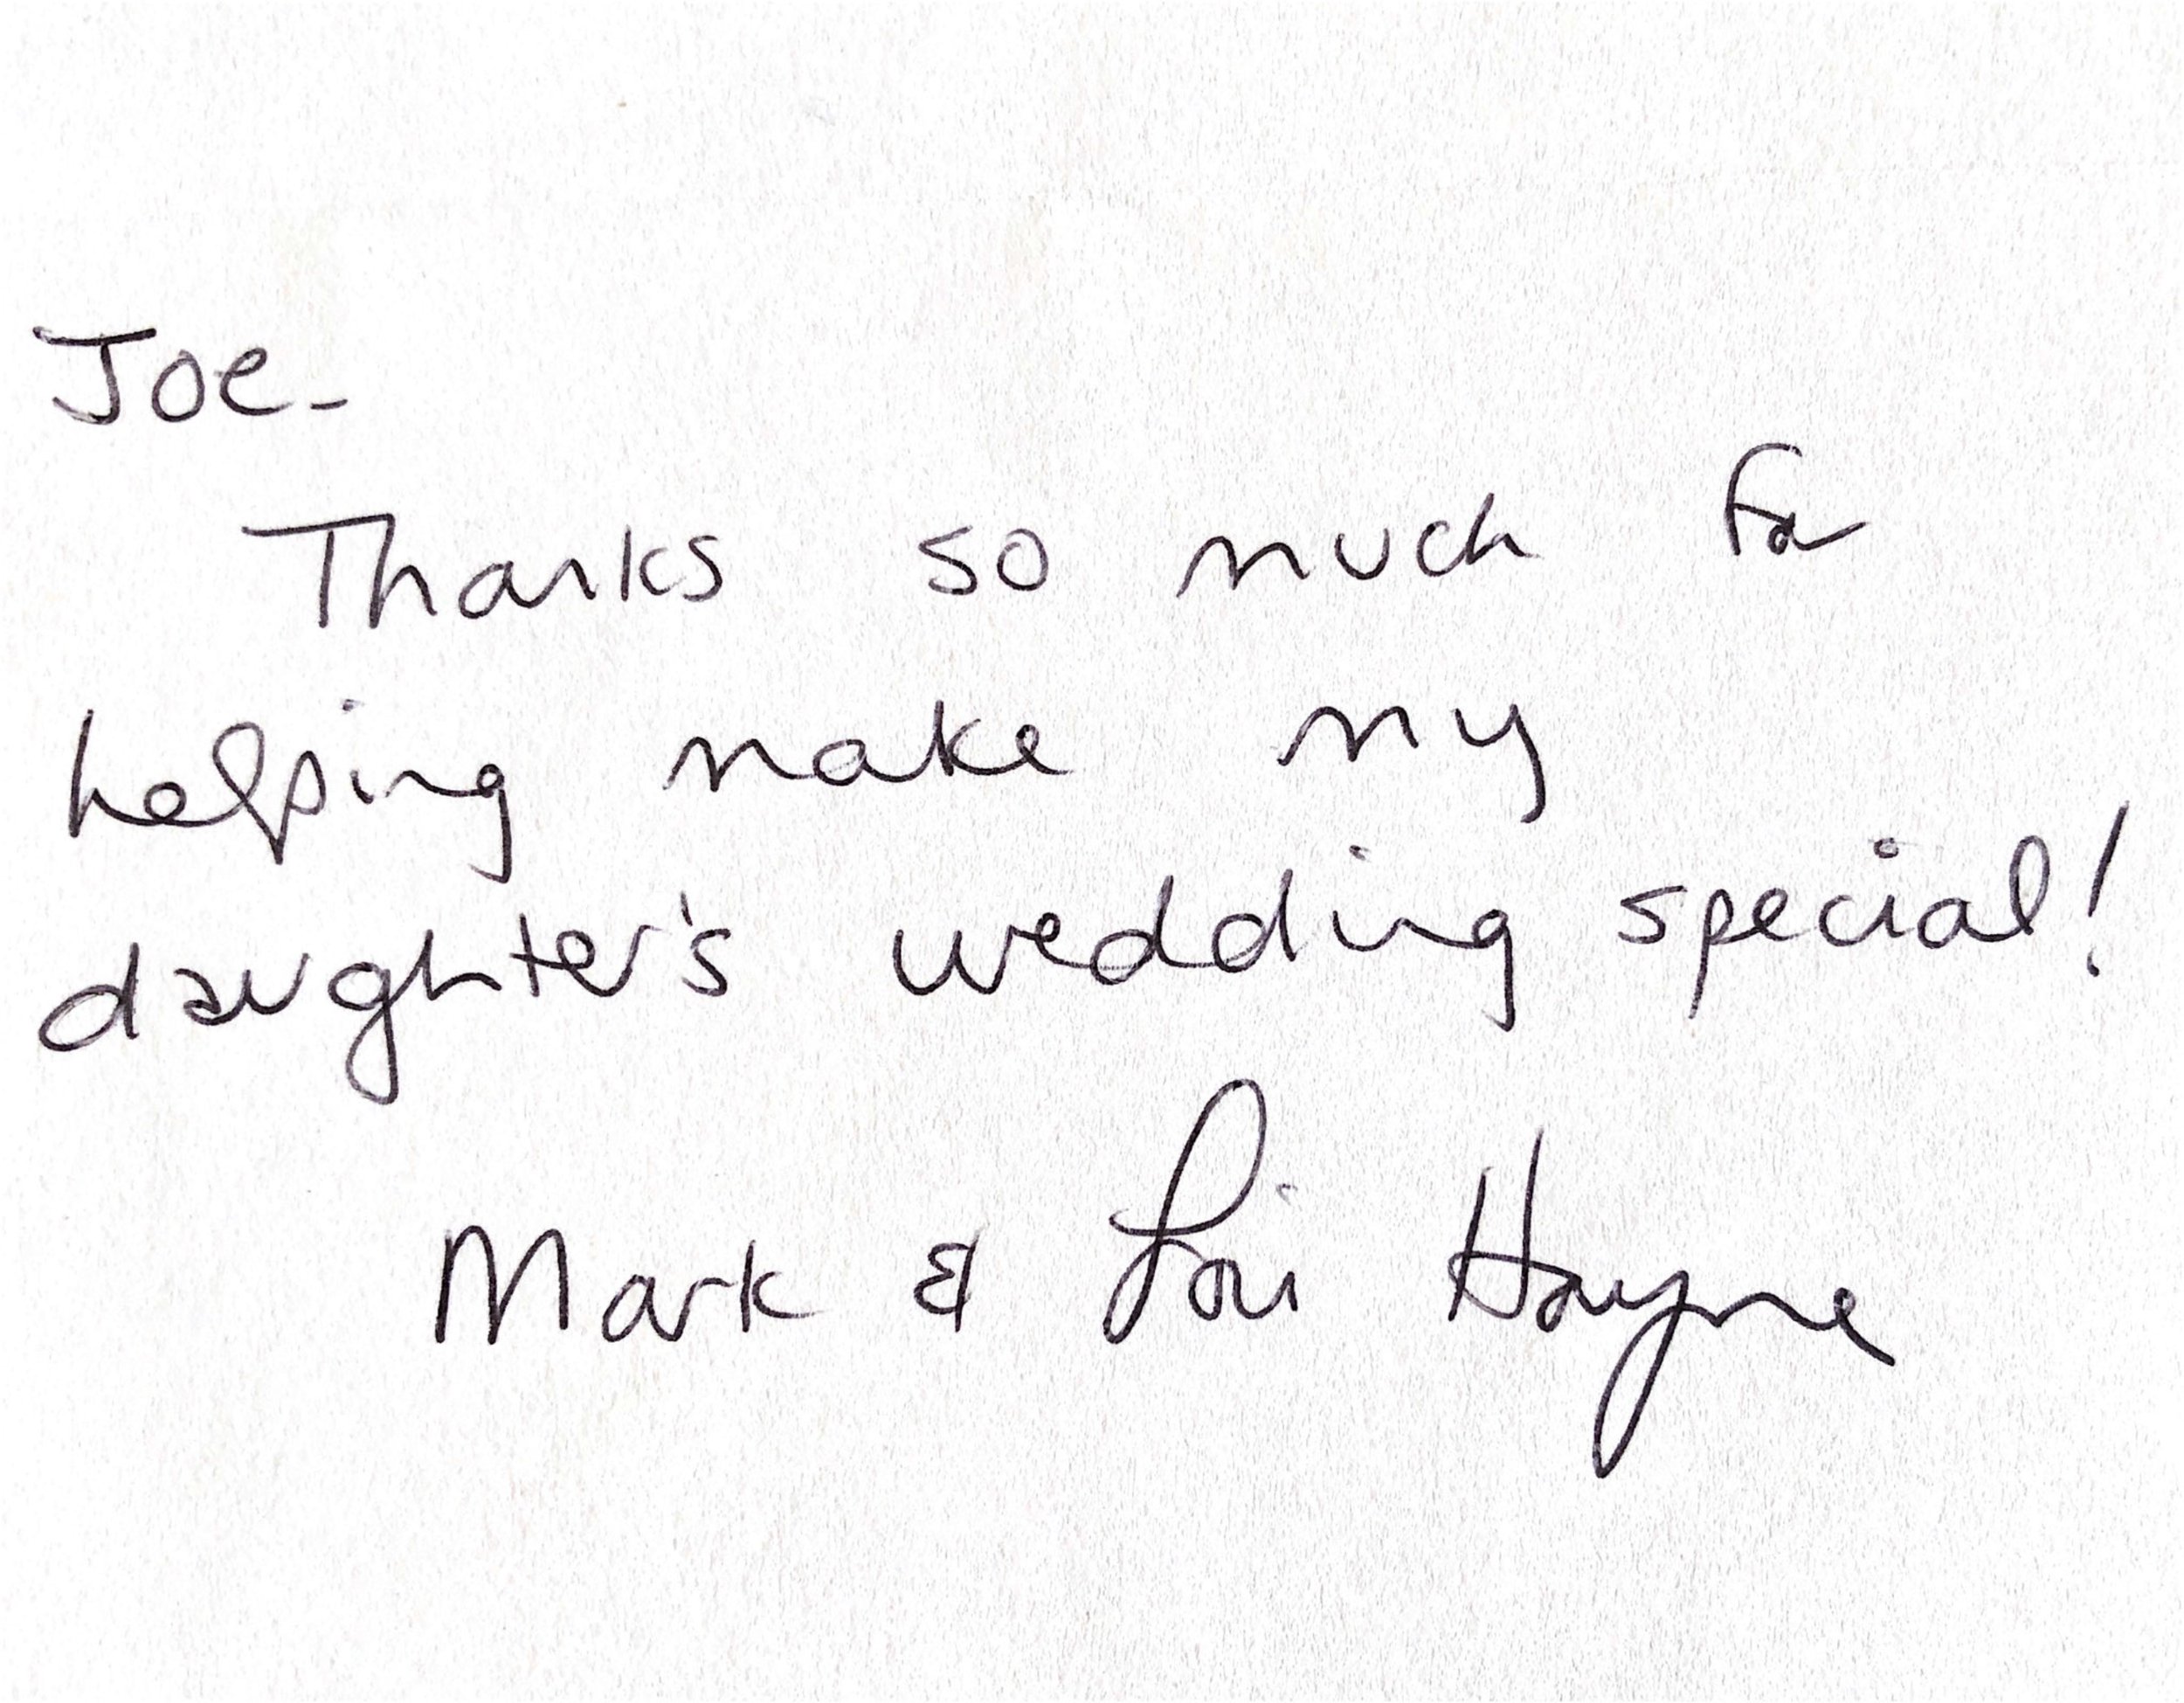 Joe-
Thanks so much for
helping make my
daughter's wedding special!
Mark & Lori Hayne